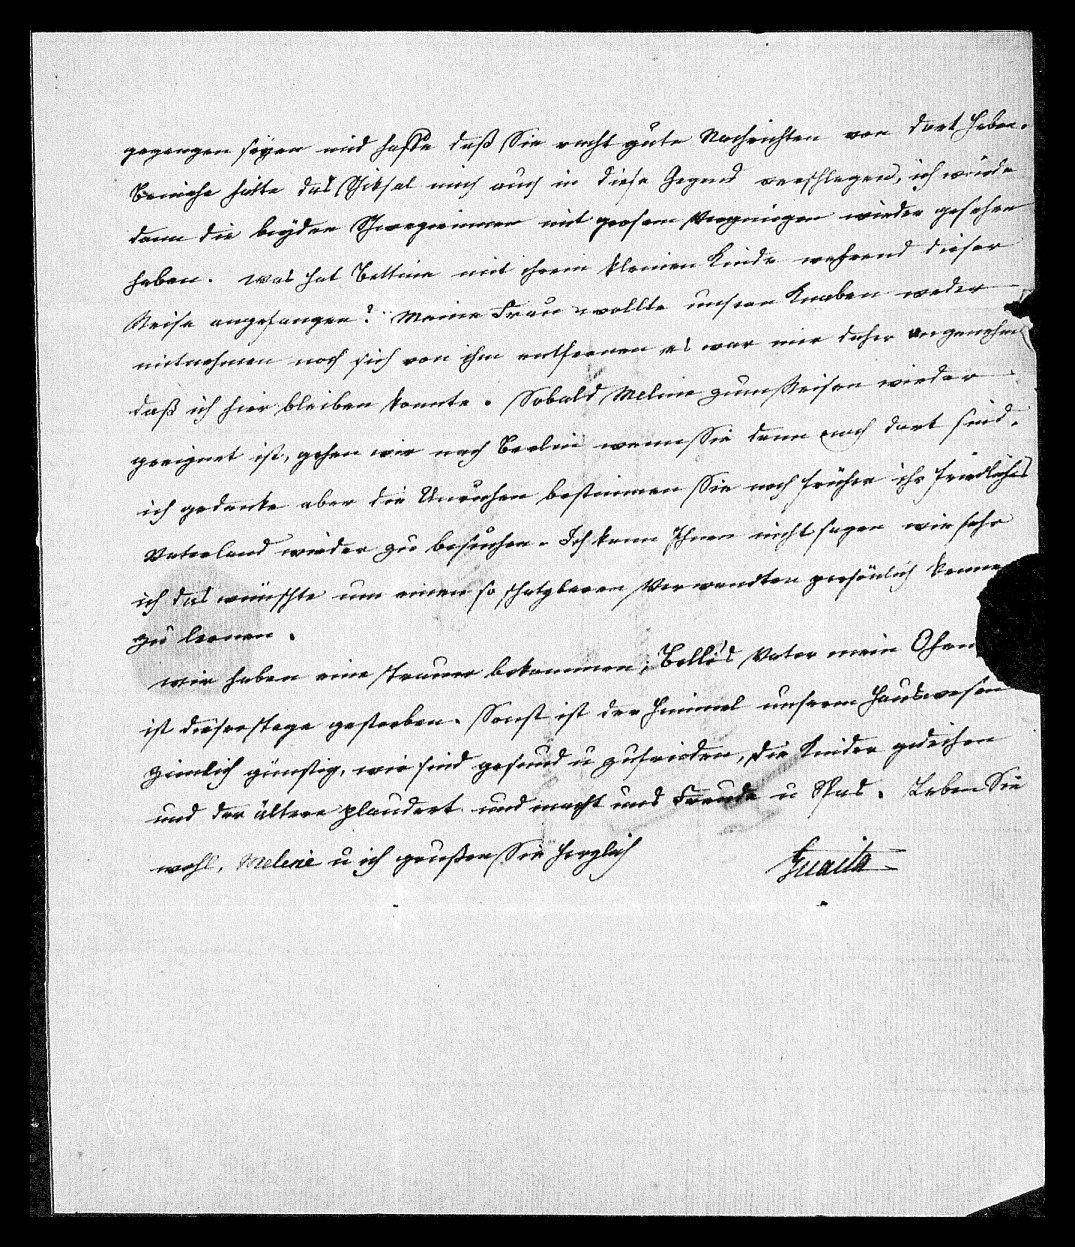 gegangen seyen und hoffe daß Sie recht gute Nachrichten von dort haben.
Beinahe hätte das Schiksal mich auch in diese Gegend verschlagen, ich würde
dann die beyden Schwegerinnen mit grosem Vergnügen wieder gesehen
haben. was hat Bettine mit ihrem kleinen Kinde wehrend dieser
Reise angefangen? Meine Frau wollte unsern Knaben weder
mitnehmen noch sich von ihm entfernen es war mir daher angenehm
daß ich hier bleiben konnte. Sobald Meline zum Reisen wieder
geeignet ist, gehen wir nach Berlin wenn Sie dann noch dort sind.
ich gedenke aber die Unruhen bestimmen Sie noch früher ihr friedliches
Vaterland wieder zu besuchen. Ich kann Ihnen nicht sagen wie sehr
ich das wünschte um einen so schatzbaren Verwandten persönlich kennen
zu lernen.
wir haben eine Trauer bekommen, Bellis Vater mein Ohm
ist dieser Tage gestorben. Sonst ist der Himmel unserm Hauswesen
zimlich günstig, wir sind gesund u zufrieden, die Kinder gedeihen
und der ältere plaudert und macht uns Freude u Spas. Leben Sie
wohl, Meline u ich grußen Sie herzlich
Guaita